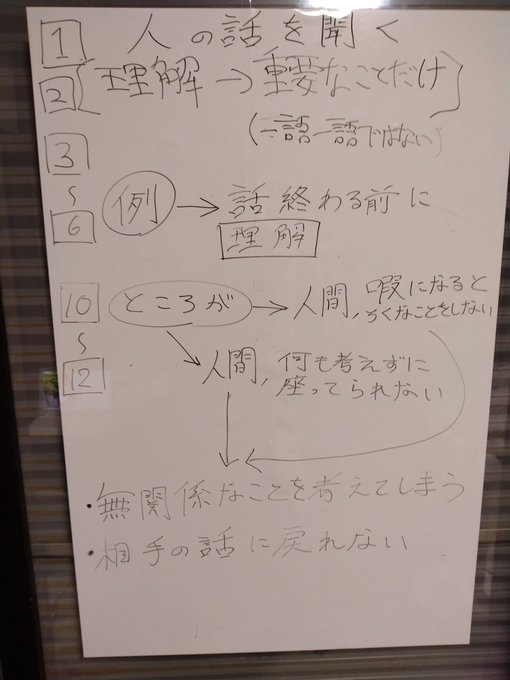 1 人の話を聞く
2 [理解→重要なことだけ]
(一語一語ではない)
3
〜
6
例 → 話終わる前に
理解
10
〜
12
ところが → 人間, 暇になると
ろくなことをしない
人間, 何も考えずに
座ってられない
・無関係なことを考えてしまう
・相手の話に戻れない